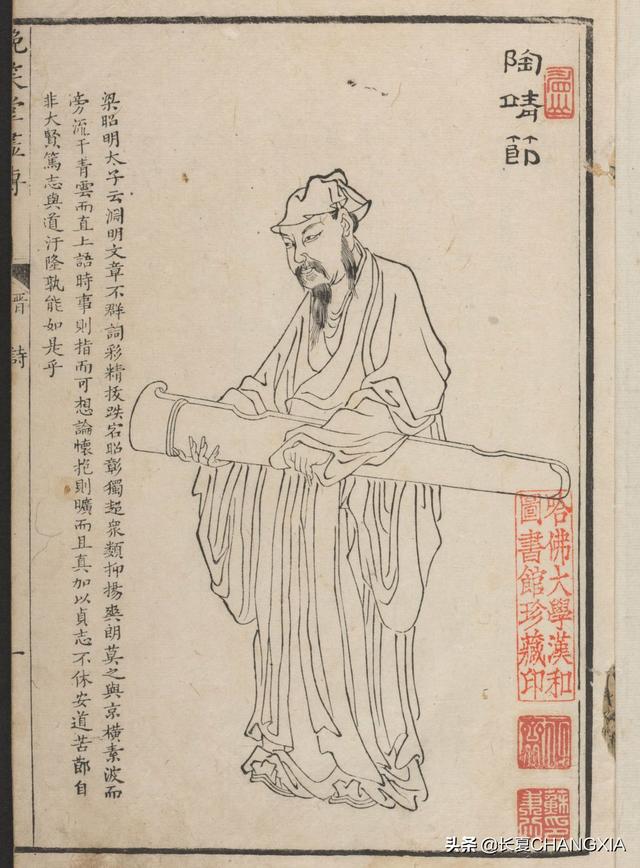 陶靖節
梁昭明太子云淵明文章不群詞彩精拔跌宕昭彰獨超衆類抑揚爽朗莫之與京橫素波而
旁流干青雲而直上語時事則指而可想論懷抱則曠而且真加以貞志不休安道苦節自
非大賢篤志與道汙隆孰能如是乎
晚笑堂畫傳
晉詩
一
哈佛大學漢和
圖書館珍藏印
头条 @长夏CHANGXIA